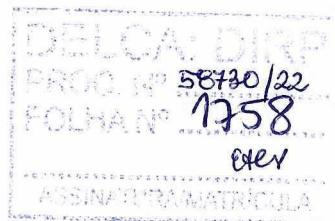 DELCA. DIRP
PROC. Nº 58730/22
FOLHA Nº 1758
ASSINATURA/MATRÍCULA